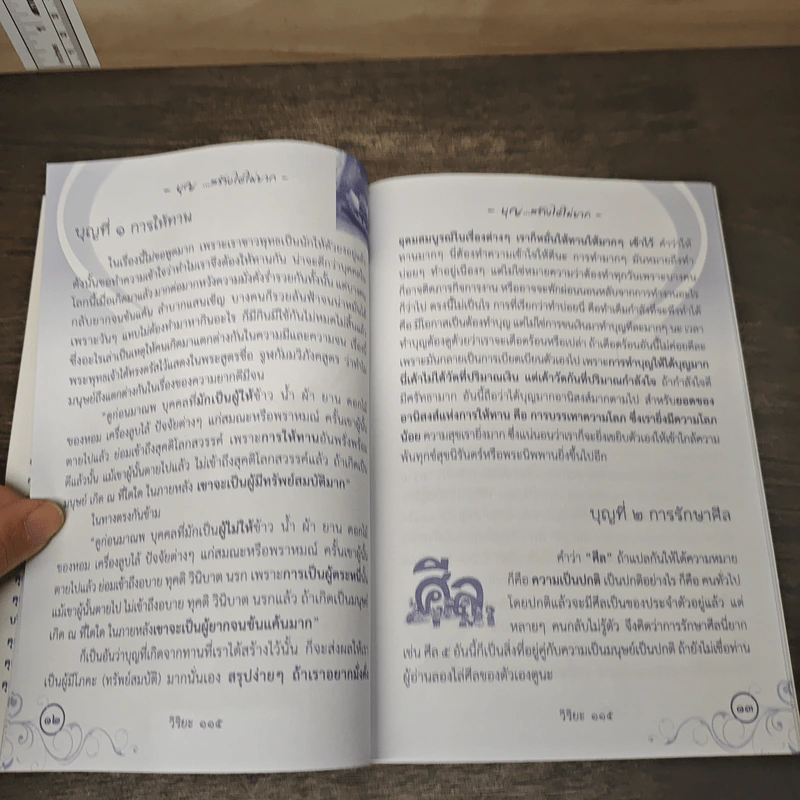 = บุญ ...สร้างได้ไม่ยาก =
บุญที่ ๑ การให้ทาน
ในเรื่องนี้ไม่ขอพูดมาก เพราะเราชาวพุทธเป็นนักให้ตัวยงอยู่แล้ว
ดังนั้นขอทำความเข้าใจว่าทำไมเราจึงต้องให้ทานกัน น่าจะดีกว่าบุคคลใน
โลกนี้เมื่อเกิดมาแล้วมากต่อมากหวังความมั่งคั่งร่ำรวยกันทั้งนั้น แต่บางคน
กลับยากจนข้นแค้น ลำบากแสนเข็ญ บางคนก็รวยล้นฟ้าจนน่าหมั่นไส้
เพราะวันๆ แทบไม่ต้องทำมาหากินอะไร ก็มีกินมีใช้กันไม่หมดไม่สิ้นแล้ว
ซึ่งอะไรเล่าเป็นเหตุให้คนเกิดมาแตกต่างกันในความมีและความจน เรื่องนี้
พระพุทธเจ้าได้ทรงตรัสไว้แสดงในพระสูตรชื่อ จูฬกัมมวิภังคสูตร ว่าทำไม
มนุษย์ถึงแตกต่างกันในเรื่องของความยากดีมีจน
"ดูก่อนมาณพ บุคคลที่มักเป็นผู้ให้ข้าว น้ำ ผ้า ยาน ดอกไม้
ของหอม เครื่องลูบไล้ ปัจจัยต่างๆ แก่สมณะหรือพราหมณ์ ครั้นเขาผู้นั้น
ตายไปแล้ว ย่อมเข้าถึงสุคติโลกสวรรค์ เพราะการให้ทานอันพรั่งพร้อม
ดีแล้วนั้น แม้เขาผู้นั้นตายไปแล้ว ไม่เข้าถึงสุคติโลกสวรรค์แล้ว ถ้าเกิดเป็น
มนุษย์ เกิด ณ ที่ใดใด ในภายหลัง เขาจะเป็นผู้มีทรัพย์สมบัติมาก"
ในทางตรงกันข้าม
"ดูก่อนมาณพ บุคคลที่มักเป็นผู้ไม่ให้ข้าว น้ำ ผ้า ยาน ดอกไม้
ของหอม เครื่องลูบไล้ ปัจจัยต่างๆ แก่สมณะหรือพราหมณ์ ครั้นเขาผู้นั้น
ตายไปแล้ว ย่อมเข้าถึงอบาย ทุคติ วินิบาต นรก เพราะการเป็นผู้ตระหนี่นั้น
แม้เขาผู้นั้นตายไป ไม่เข้าถึงอบาย ทุคติ วินิบาต นรกแล้ว ถ้าเกิดเป็นมนุษย์
เกิด ณ ที่ใดใด ในภายหลังเขาจะเป็นผู้ยากจนข้นแค้นมาก"
ก็เป็นอันว่าบุญที่เกิดจากทานที่เราได้สร้างไว้นั้น ก็จะส่งผลให้เรา
เป็นผู้มีโภคะ (ทรัพย์สมบัติ) มากนั่นเอง สรุปง่ายๆ ถ้าเราอยากมั่งคั่ง
๑๒
วิริยะ ๑๑๕
= บุญ ...สร้างได้ไม่ยาก =
อุดมสมบูรณ์ในเรื่องต่างๆ เราก็หมั่นให้ทานให้มากๆ เข้าไว้ คำว่าให้
ทานมากๆ นี่ต้องทำความเข้าใจให้ดีนะ การทำมากๆ มันหมายถึงทำ
บ่อยๆ ทำอยู่เนืองๆ แต่ไม่ใช่หมายความว่าต้องทำทุกวันเพราะบางคน
ก็อาจติดภารกิจการงาน หรืออาจจะพักผ่อนนอนหลับจากการทำงานอะไร
ก็ว่าไป ตรงนี้ไม่เป็นไร การที่เรียกว่าทำบ่อยนี่ คือทำเต็มกำลังที่จะพึงทำได้
คือ มีโอกาสเป็นต้องทำบุญ แต่ไม่ใช่การขนเงินมาทำบุญทีละมากๆ นะ เวลา
ทำบุญต้องดูด้วยว่าเราจะเดือดร้อนหรือเปล่า ถ้าเดือดร้อนอันนี้ไม่ค่อยดีละ
เพราะมันกลายเป็นการเบียดเบียนตัวเองไป เพราะการทำบุญให้ได้บุญมาก
นี่เค้าไม่ได้วัดที่ปริมาณเงิน แต่เค้าวัดกันที่ปริมาณกำลังใจ ถ้ากำลังใจดี
มีศรัทธามาก อันนี้ถือว่าได้บุญมากอานิสงส์มากตามไป สำหรับยอดของ
อานิสงส์แห่งการให้ทาน คือ การบรรเทาความโลภ ซึ่งเรายิ่งมีความโลภ
น้อย ความสุขเรายิ่งมาก ซึ่งแน่นอนว่าเราก็จะยิ่งเขยิบตัวเองให้เข้าใกล้ความ
พ้นทุกข์สุขนิรันดร์หรือพระนิพพานยิ่งขึ้นไปอีก
บุญที่ ๒ การรักษาศีล
ศีล
คำว่า "ศีล" ถ้าแปลกันให้ได้ความหมาย
ก็คือ ความเป็นปกติ เป็นปกติอย่างไร ก็คือ คนทั่วไป
โดยปกติแล้วจะมีศีลเป็นของประจำตัวอยู่แล้ว แต่
หลายๆ คนกลับไม่รู้ตัว จึงคิดว่าการรักษาศีลนี่ยาก
เช่น ศีล ๕ อันนี้ก็เป็นสิ่งที่อยู่คู่กับความเป็นมนุษย์เป็นปกติ ถ้ายังไม่เชื่อท่าน
ผู้อ่านลองไล่ศีลของตัวเองดูนะ
วิริยะ ๑๑๕
๑๓